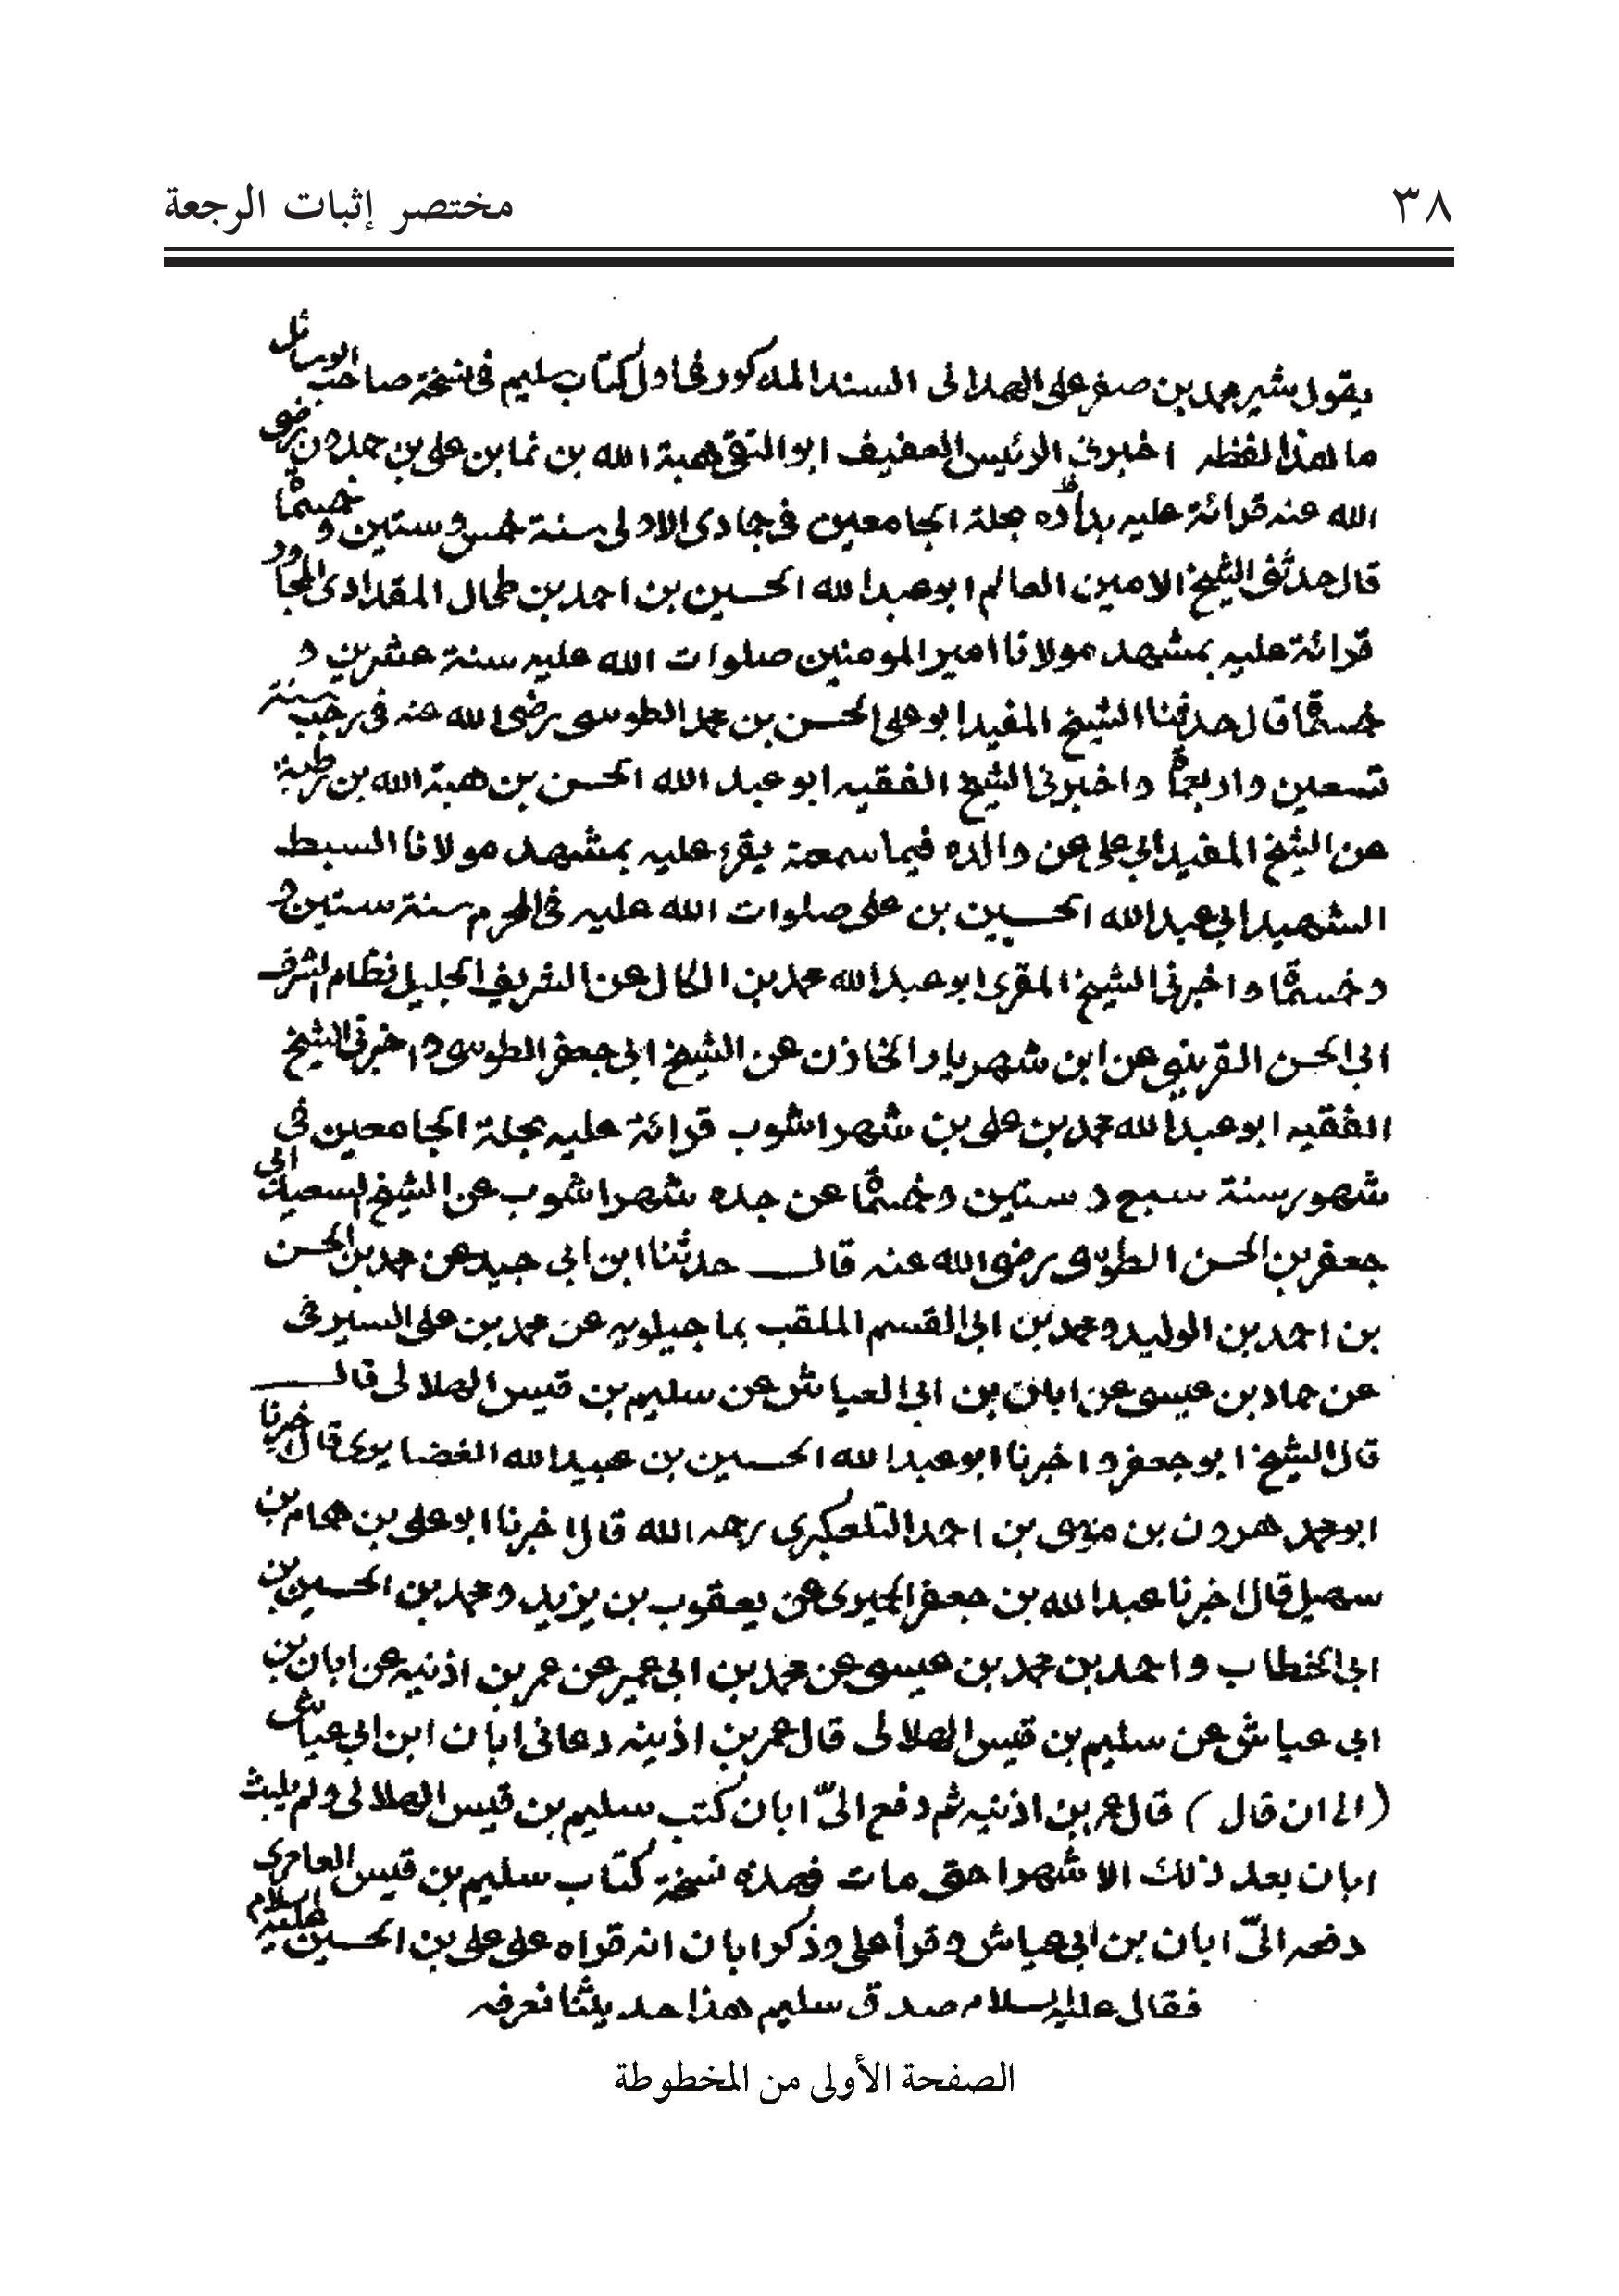 ٣٨
مختصر إثبات الرجعة
يقول شير محمد بن صفر على الهمدانى السند المذكور فى اول كتاب سليم فى نسخة صاحب الوسائل
ما هذا لفظه اخبرنى الرئيس العفيف ابو التقى هبة الله بن نما بن على بن حمدون رضى
الله عنه قرائة عليه بداره بحلة الجامعين فى جمادى الاولى سنة خمس و ستين و خمسمأة
قال حدثنى الشيخ الامين العالم ابو عبد الله الحسين بن احمد بن طحال المقدادى المجاور
قرائة عليه بمشهد مولانا امير المومنين صلوات الله عليه سنة عشرين و
خمسمأة قال حدثنا الشيخ المفيد ابو على الحسن بن محمد الطوسى رضى الله عنه فى رجب سنة
تسعين و اربعمأة و اخبرنى الشيخ الفقيه ابو عبد الله الحسن بن هبة الله بن رطبة
عن الشيخ المفيد ابى على عن والده فيما سمعته يقرء عليه بمشهد مولانا السبط
الشهيد ابى عبد الله الحسين بن على صلوات الله عليه فى المحرم سنة ستين و
و خمسمأة و اخبرنى الشيخ المقرى ابو عبد الله محمد بن الكال عن الشريف الجليل نظام الشرف
ابى الحسن العريضى عن ابن شهريار الخازن عن الشيخ ابى جعفر الطوسى و اخبرنى الشيخ
الفقيه ابو عبد الله محمد بن على بن شهراشوب قرائة عليه بحلة الجامعين فى
شهور سنة سبع و ستين و خمسمأة عن جده شهراشوب عن الشيخ السعيد ابى
جعفر بن الحسن الطوسى رضى الله عنه قال حدثنا ابن ابى جيد عن محمد بن الحسن
بن احمد بن الوليد و محمد بن ابى القسم الملقب بماجيلويه عن محمد بن على السيرفى
عن حماد بن عيسى عن ابان بن ابى العياش عن سليم بن قيس الهلالى قال
قال الشيخ ابو جعفر و اخبرنا ابو عبد الله الحسين بن عبيد الله الغضايرى قال اخبرنا
ابو محمد هرون بن موسى بن احمد التلعكبرى رحمه الله قال اخبرنا ابو على بن همام بن
سهيل قال اخبرنا عبد الله بن جعفر الحميرى عن يعقوب بن يزيد و محمد بن الحسين بن
ابى الخطاب و احمد بن محمد بن عيسى عن محمد بن ابى عمير عن عمر بن اذنيه عن ابان بن
ابى عياش عن سليم بن قيس الهلالى قال عمر بن اذينه دعانى ابان ابن ابى عياش
(الى ان قال) قال عمر بن اذنيه ثم دفع الىّ ابان كتب سليم بن قيس الهلالى و لم يلبث
ابان بعد ذلك الا شهرا حتى مات فهذه نسخة كتاب سليم بن قيس العامرى
دفعه الىّ ابان بن ابى عياش و قرأ على و ذكر ابان انه قراه على على بن الحسين عليه السلام
فقال عليه السلام صدق سليم هذا حديثنا نعرفه
الصفحة الأولى من المخطوطة